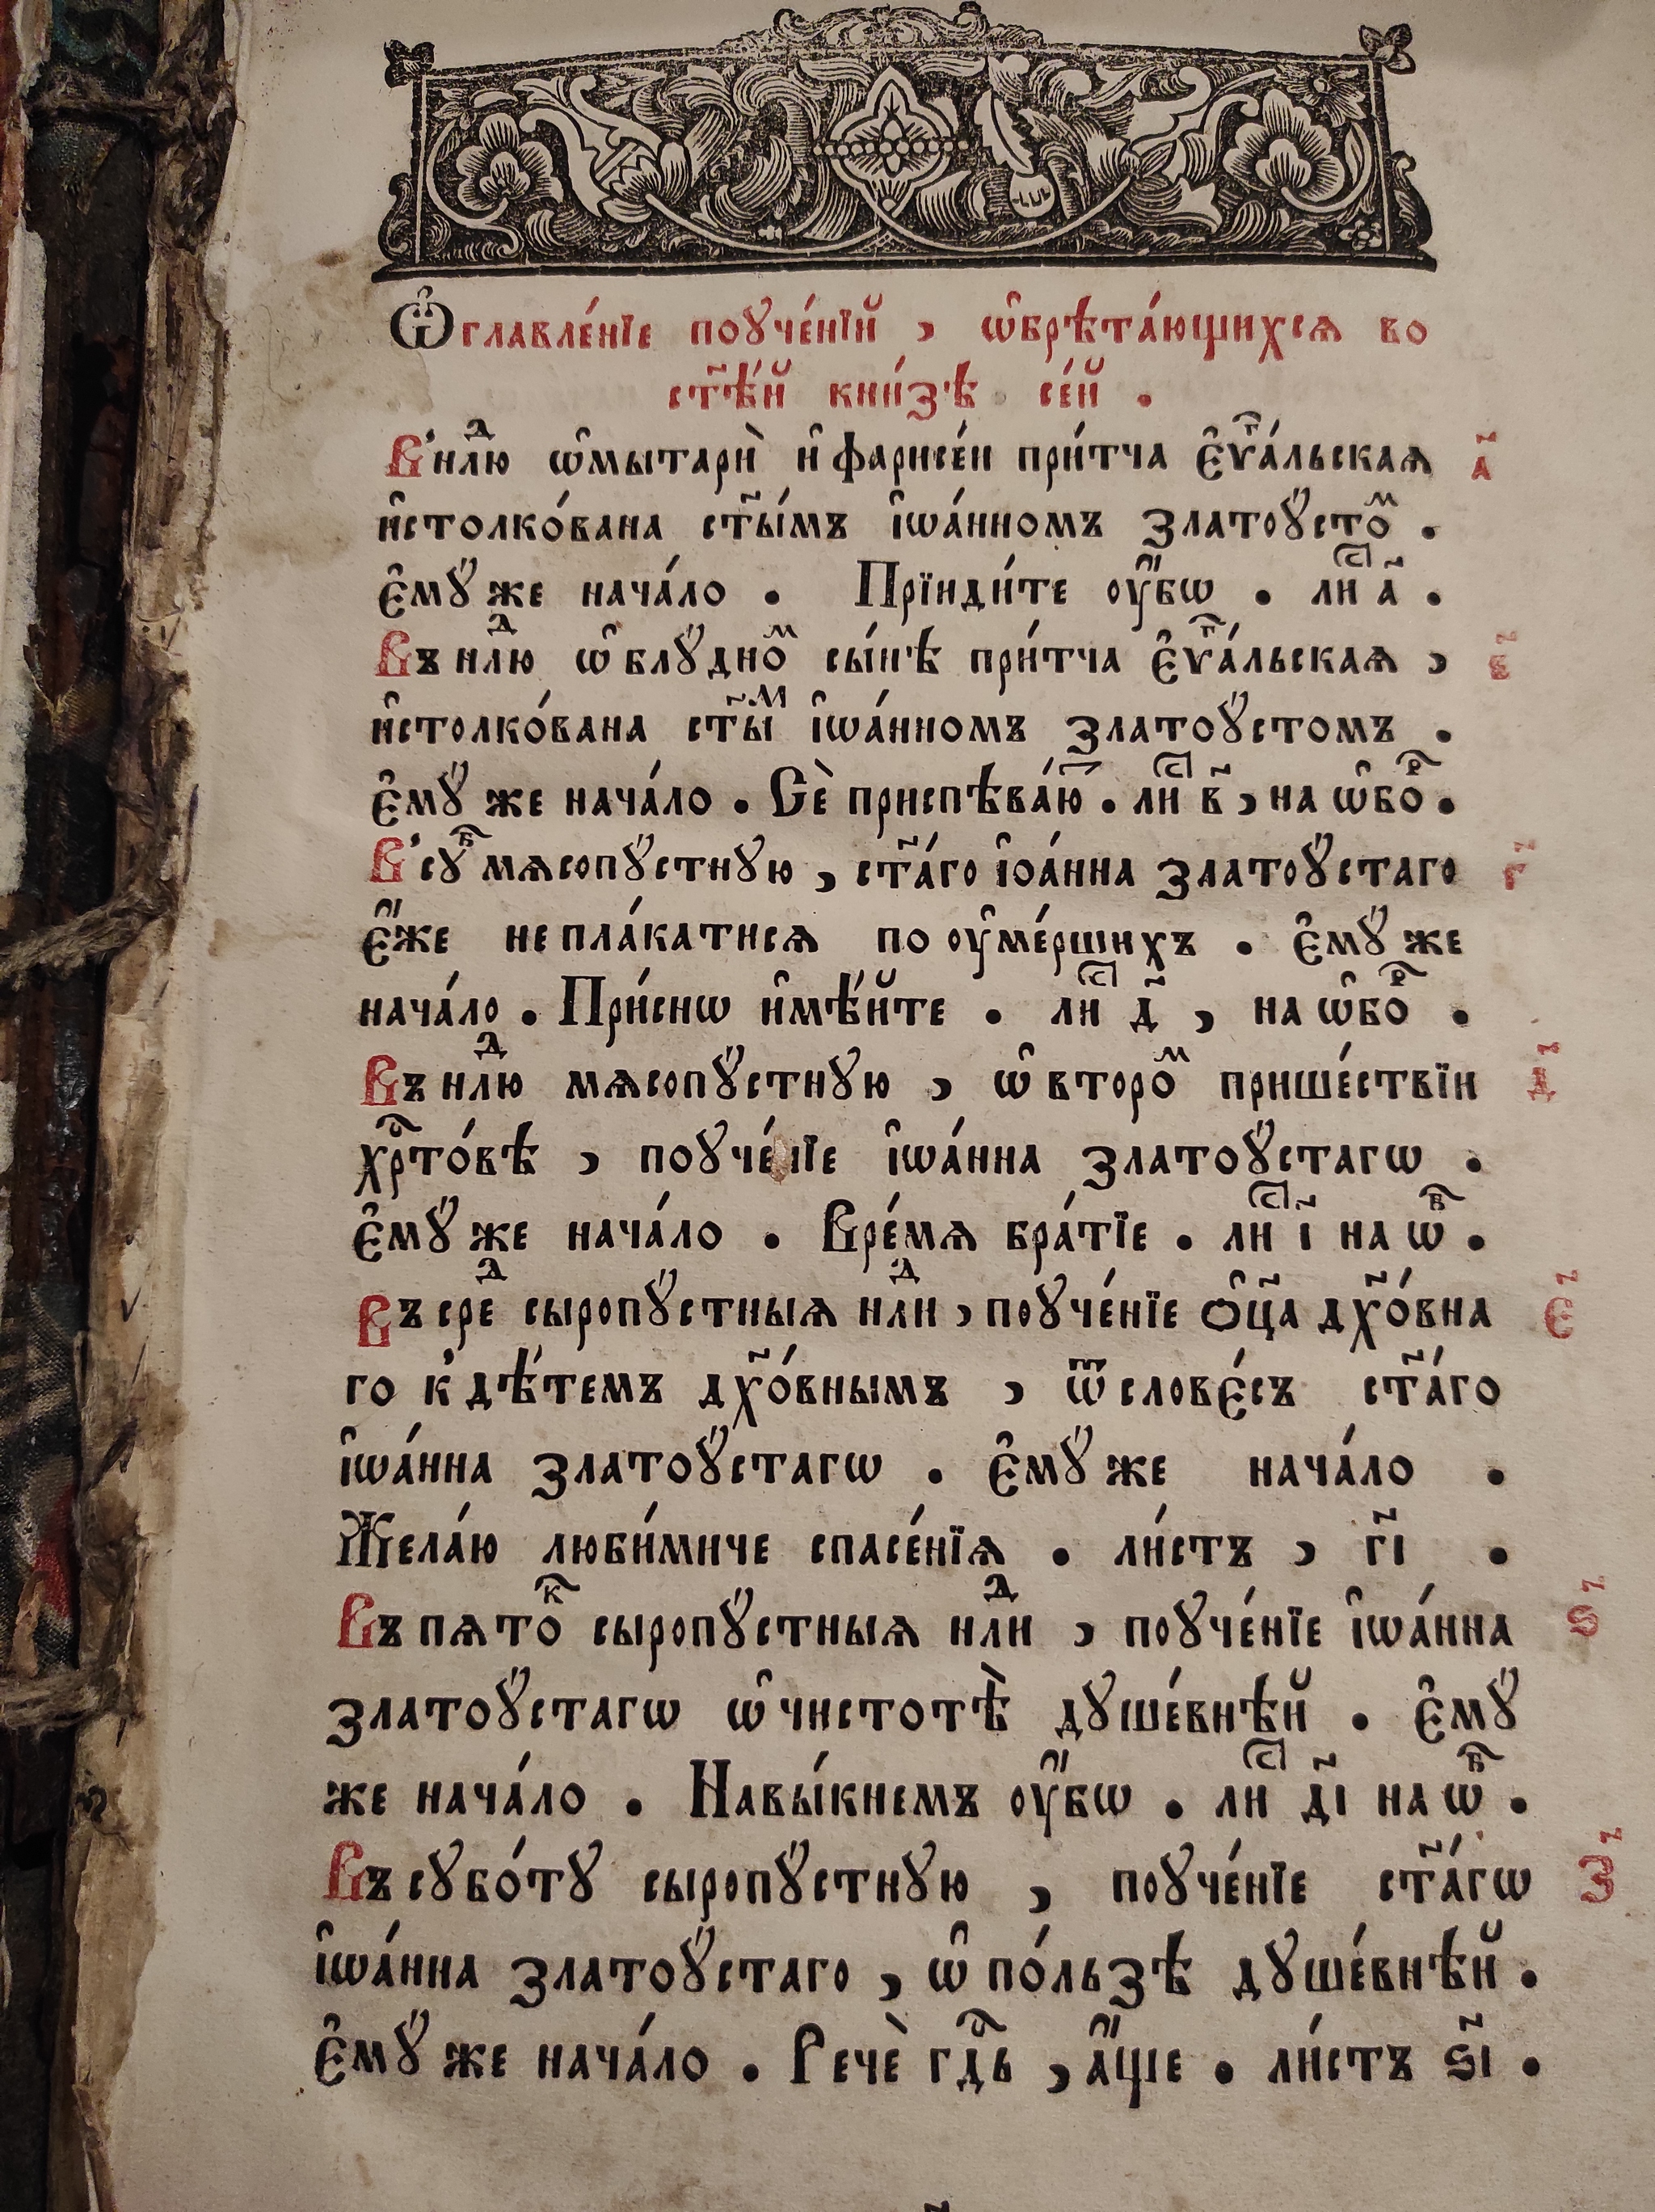 Ѽглавле́нїе поꙋче́нїй , ѡ҆брѣта́ющихсѧ во
ст҃ѣ́й кни́зѣ се́й .
В̾нлⷣю ѡ҆мытарѝ и҆фарисе́и при́тча є҆ѵⷢ҇а́льскаѧ а҃
и҆столко́вана ст҃ы́мъ і҆ѡа́нномъ златоꙋ́стоⷨ .
є҆мꙋ́же нача́ло . Прїиди́те ᲂу҆́бѡ . лиⷭ҇ а҃ .
Въ нлⷣю ѡ҆ блꙋ́дноⷨ сы́нѣ при́тча є҆ѵⷢ҇а́льскаѧ , в҃
и҆столко́вана ст҃ы́ⷨ і҆ѡа́нномъ златоꙋ́стомъ .
є҆мꙋ́ же нача́ло . Сѐ приспѣва́ю . лиⷭ҇ в҃ , на ѡ҆боⷬ҇ .
В̾сꙋⷠ҇ мѧсопꙋ́стнꙋю , ст҃а́го і҆оа́нна златоꙋ́стаго г҃
є҆́же непла́катисѧ по ᲂу҆ме́ршихъ . є҆мꙋ́ же
нача́ло . При́снѡ и҆мѣ́йте . лиⷭ҇ д҃ , на ѡ҆боⷬ҇ .
Въ нлⷣю мѧсопꙋ́стнꙋю , ѡ҆ второⷨ прише́ствїи д҃
хрⷭ҇то́вѣ , поꙋче́нїе і҆ѡа́нна златоꙋ́стагѡ .
є҆мꙋ́ же нача́ло . Вре́мѧ бра́тїе . лиⷭ҇ і҃ на ѡ҆ⷠ҇ .
Въ среⷣ сыропꙋ́стныѧ нлⷣи , поꙋче́нїе ѻ҆ц҃а дх҃о́вна є҃
го к̾дѣ́темъ дх҃о́внымъ , ѿ слове́съ ст҃а́го
і҆ѡа́нна златоꙋ́стагѡ . є҆мꙋ́ же нача́ло .
Жела́ю люби́миче спасе́нїѧ . ли́стъ , г҃і .
Въ пѧтоⷦ҇ сыропꙋ́стныѧ нлⷣи , поꙋче́нїе і҆ѡа́нна ѕ҃
златоꙋ́стагѡ ѡ҆ чистотѣ̀ дꙋше́внѣй . є҆мꙋ́
же нача́ло . Навы́кнемъ ᲂу҆́бѡ . лиⷭ҇ д҃і на ѡ҆ⷠ҇ .
Въ сꙋбо́тꙋ сыропꙋ́стнꙋю , поꙋче́нїе ст҃а́гѡ з҃
і҆ѡа́нна златоꙋ́стаго , ѡ҆ по́льзѣ дꙋше́внѣй .
є҆мꙋ́ же нача́ло . Речѐ гдⷭ҇ь , а҆́ще . ли́стъ ѕ҃і .